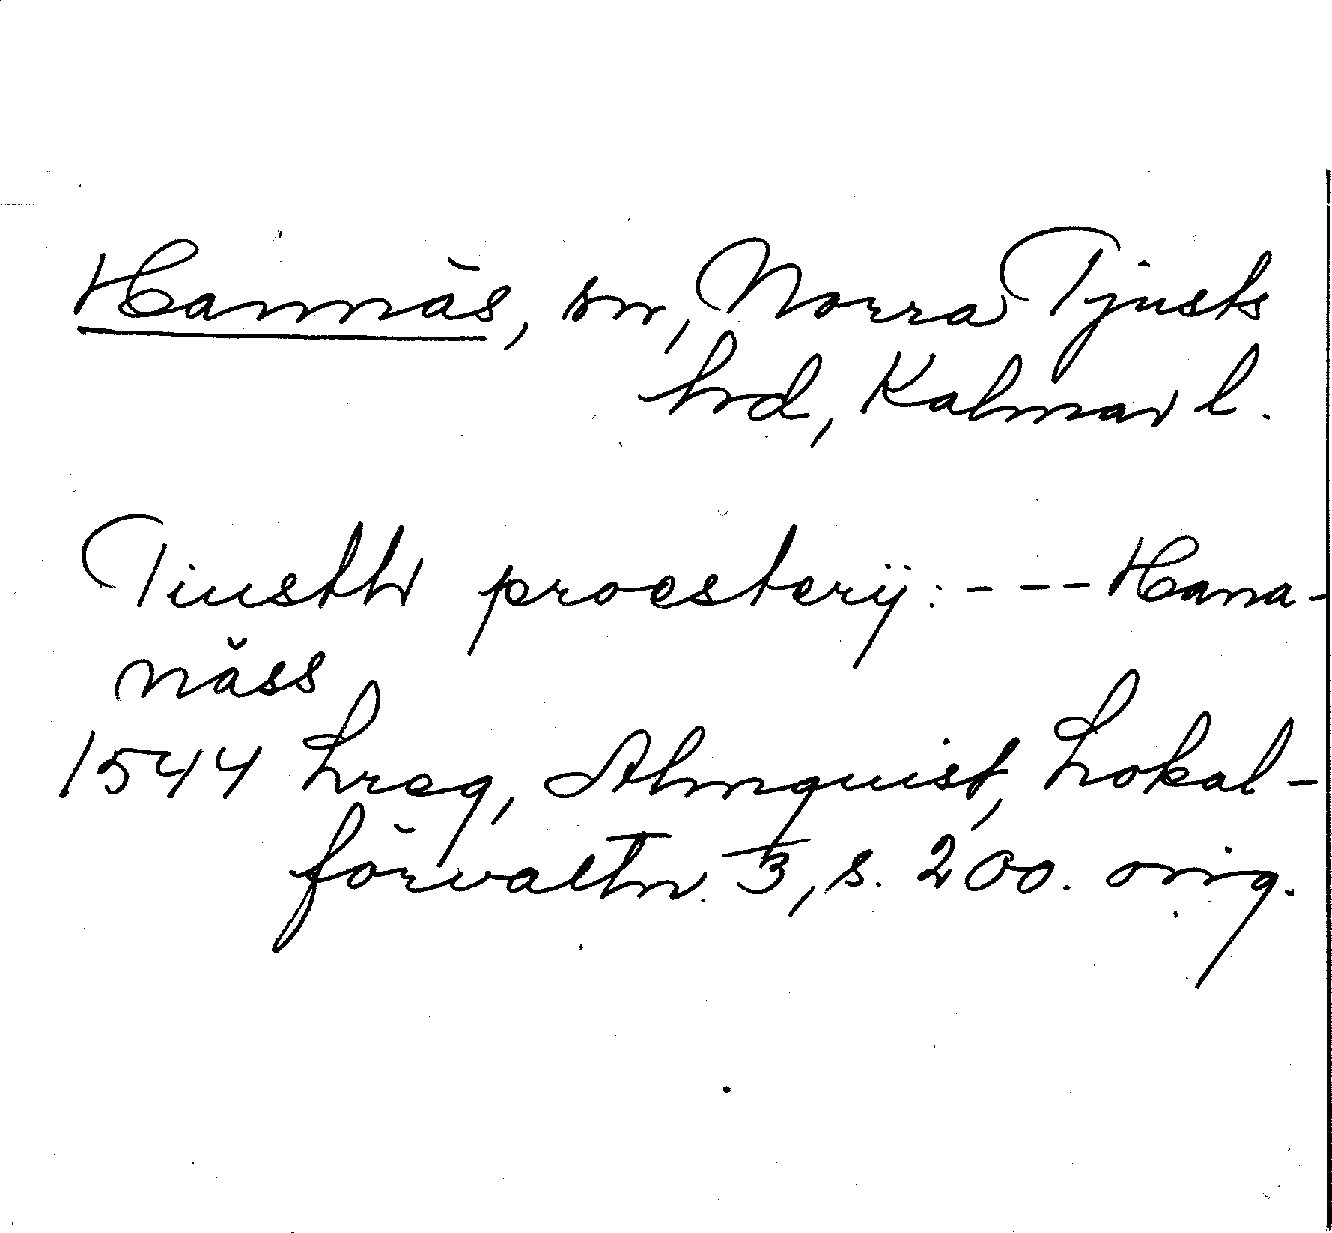 Hannäs, sn, Norra Tjusts
hd, Kalmar l.
Tiusthr proesterÿ: --- Hana-
näss
1544 Lreg, Almquist, Lokal-
förvaltn. 3, s. 200. orig.